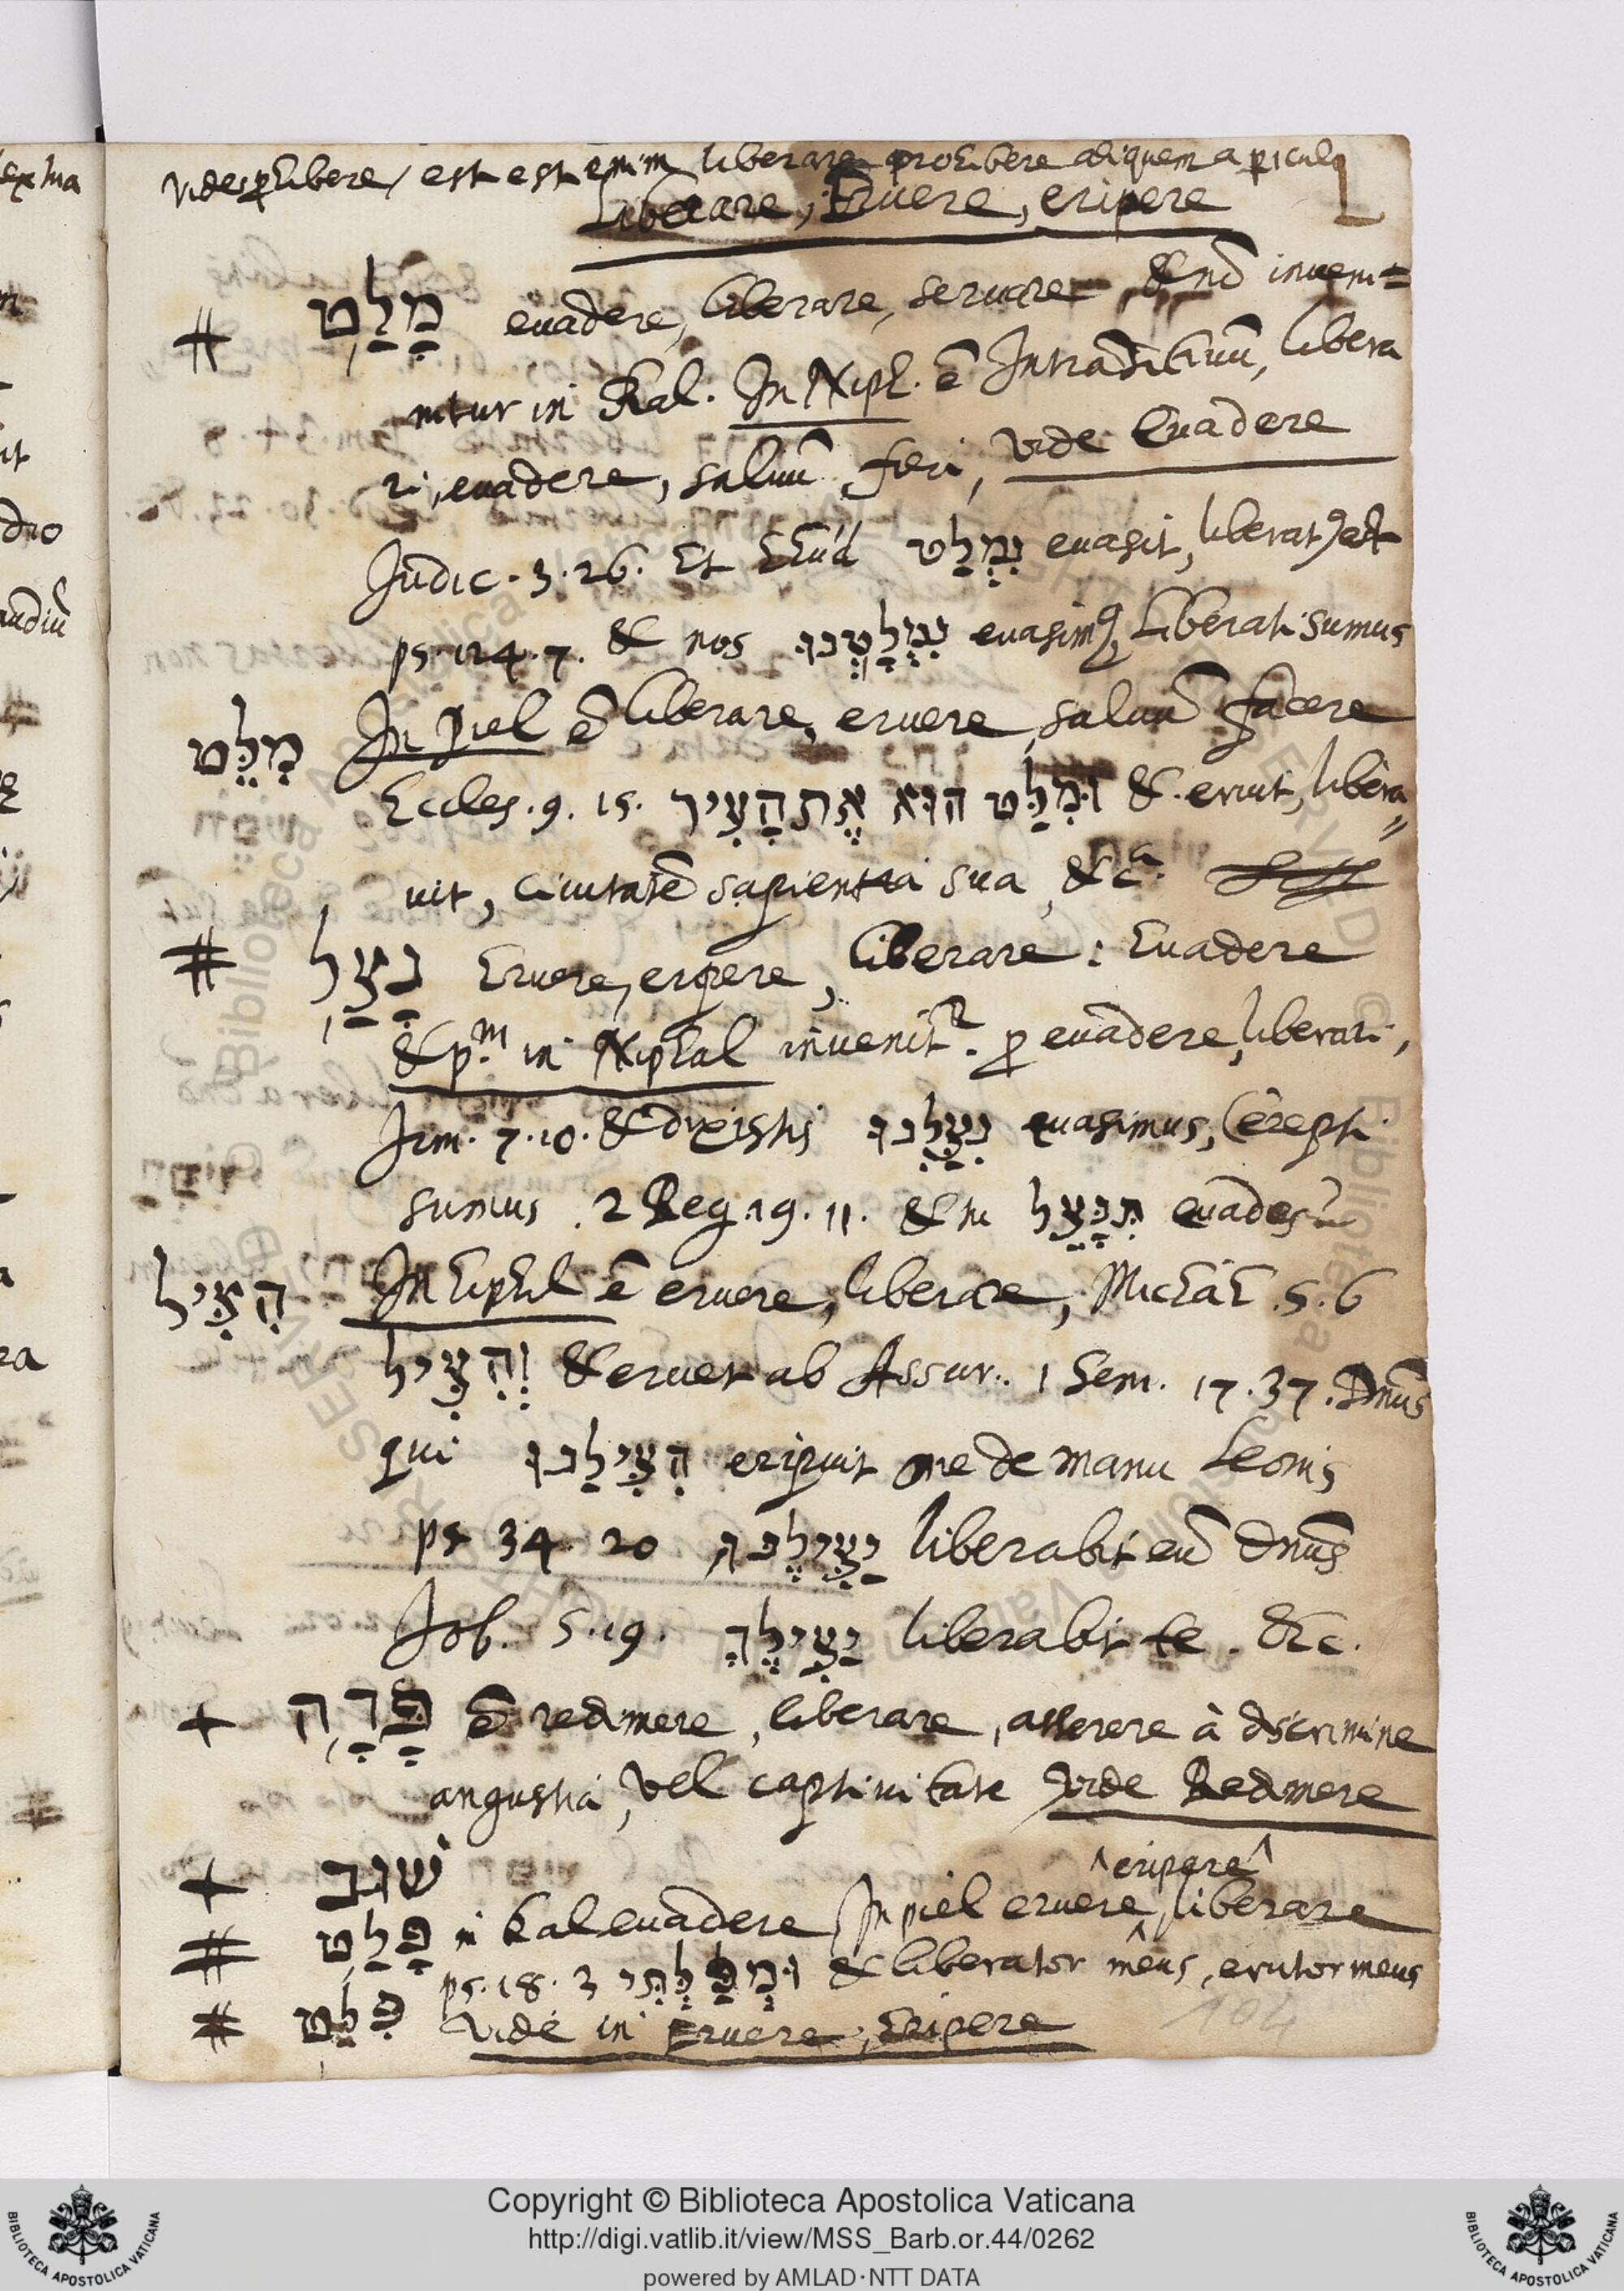 vide prohibere, est est enim liberare prohibere aliquem a piculo
Liberare, Eruere, eripere
# מָלַט evadere, liberare, servare, & nō inveni=
untur in Kal. In Niph. ē Intransitivū, libera
ri, evadere, salvū fieri, vide Evadere
Judic. 3. 26. Et Ehud נִמְלַט evasit, liberat9 est
ps 124. 7. & nos נִמְלָטְנוּ evasim9, liberati sumus
מִלֵּט In Piel ē liberare, eruere, salvū facere
Eccles. 9. 15. וּמִלַּט הוּא אֶת הָעִיר & eruit, libera„
vit, civitatē sapientia sua, &cª.
# נָצַל Eruere, eripere, liberare: Evadere
&pm in Niphal invenitr. p evadere, liberari,
Jrm. 7. 10. & dixistis נִצַּלְנוּ evasimus, (erepti
sumus. 2 Reg. 19. 11. & tu תִּנָּצֵל evades?
הִצִּיל In Hiphil ē eruere, liberare, Michah. 5. 6
וְהִצִּיל & eruet ab Assur. 1 Sem. 17. 37. Dnūs
qui הִצִּילַנוּ eripuit me de manu Leonis
ps 34. 20 יַצִּילֶנּוּ liberabit eū Dnūs
Job. 5. 19. יַצִּילֶךָ liberabit te. &c.
+ פָּדָה ē redimere, liberare, asserere à discrimine
angustia, vel captivitate vide Redimere
+ שׂגב
^eripere^
# פָּלַט in Kal evadere, In piel eruere, liberare
ps. 18. 3 וּמְפַלְּתִי & liberator meus, erutor meus
# פִּלֵּט vide in Eruere, Eripere
104
Copyright © Biblioteca Apostolica Vaticana
http://digi.vatlib.it/view/MSS_Barb.or.44/0262
powered by AMLAD·NTT DATA
BIBLIOTECA APOSTOLICA VATICANA
BIBLIOTECA APOSTOLICA VATICANA